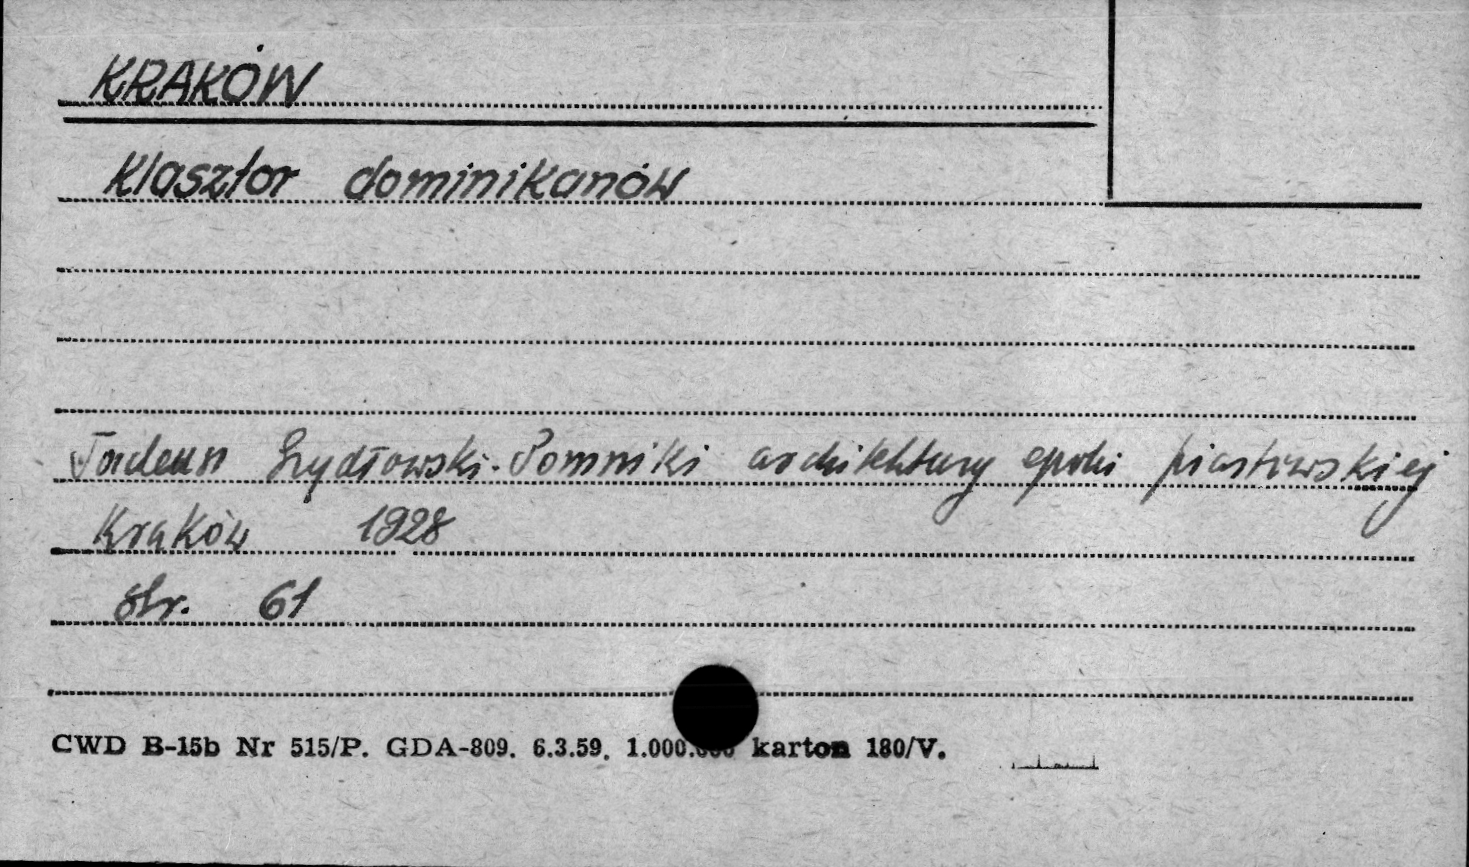 KRAKÓW
Klasztor dominikanów
Tadeusz Szydłowski. Pomniki architektury epoki piastowskiej
Kraków 1928
str. 61
CWD B-15b Nr 515/P. GDA-809. 6.3.59. 1.000.000 karton 180/V.